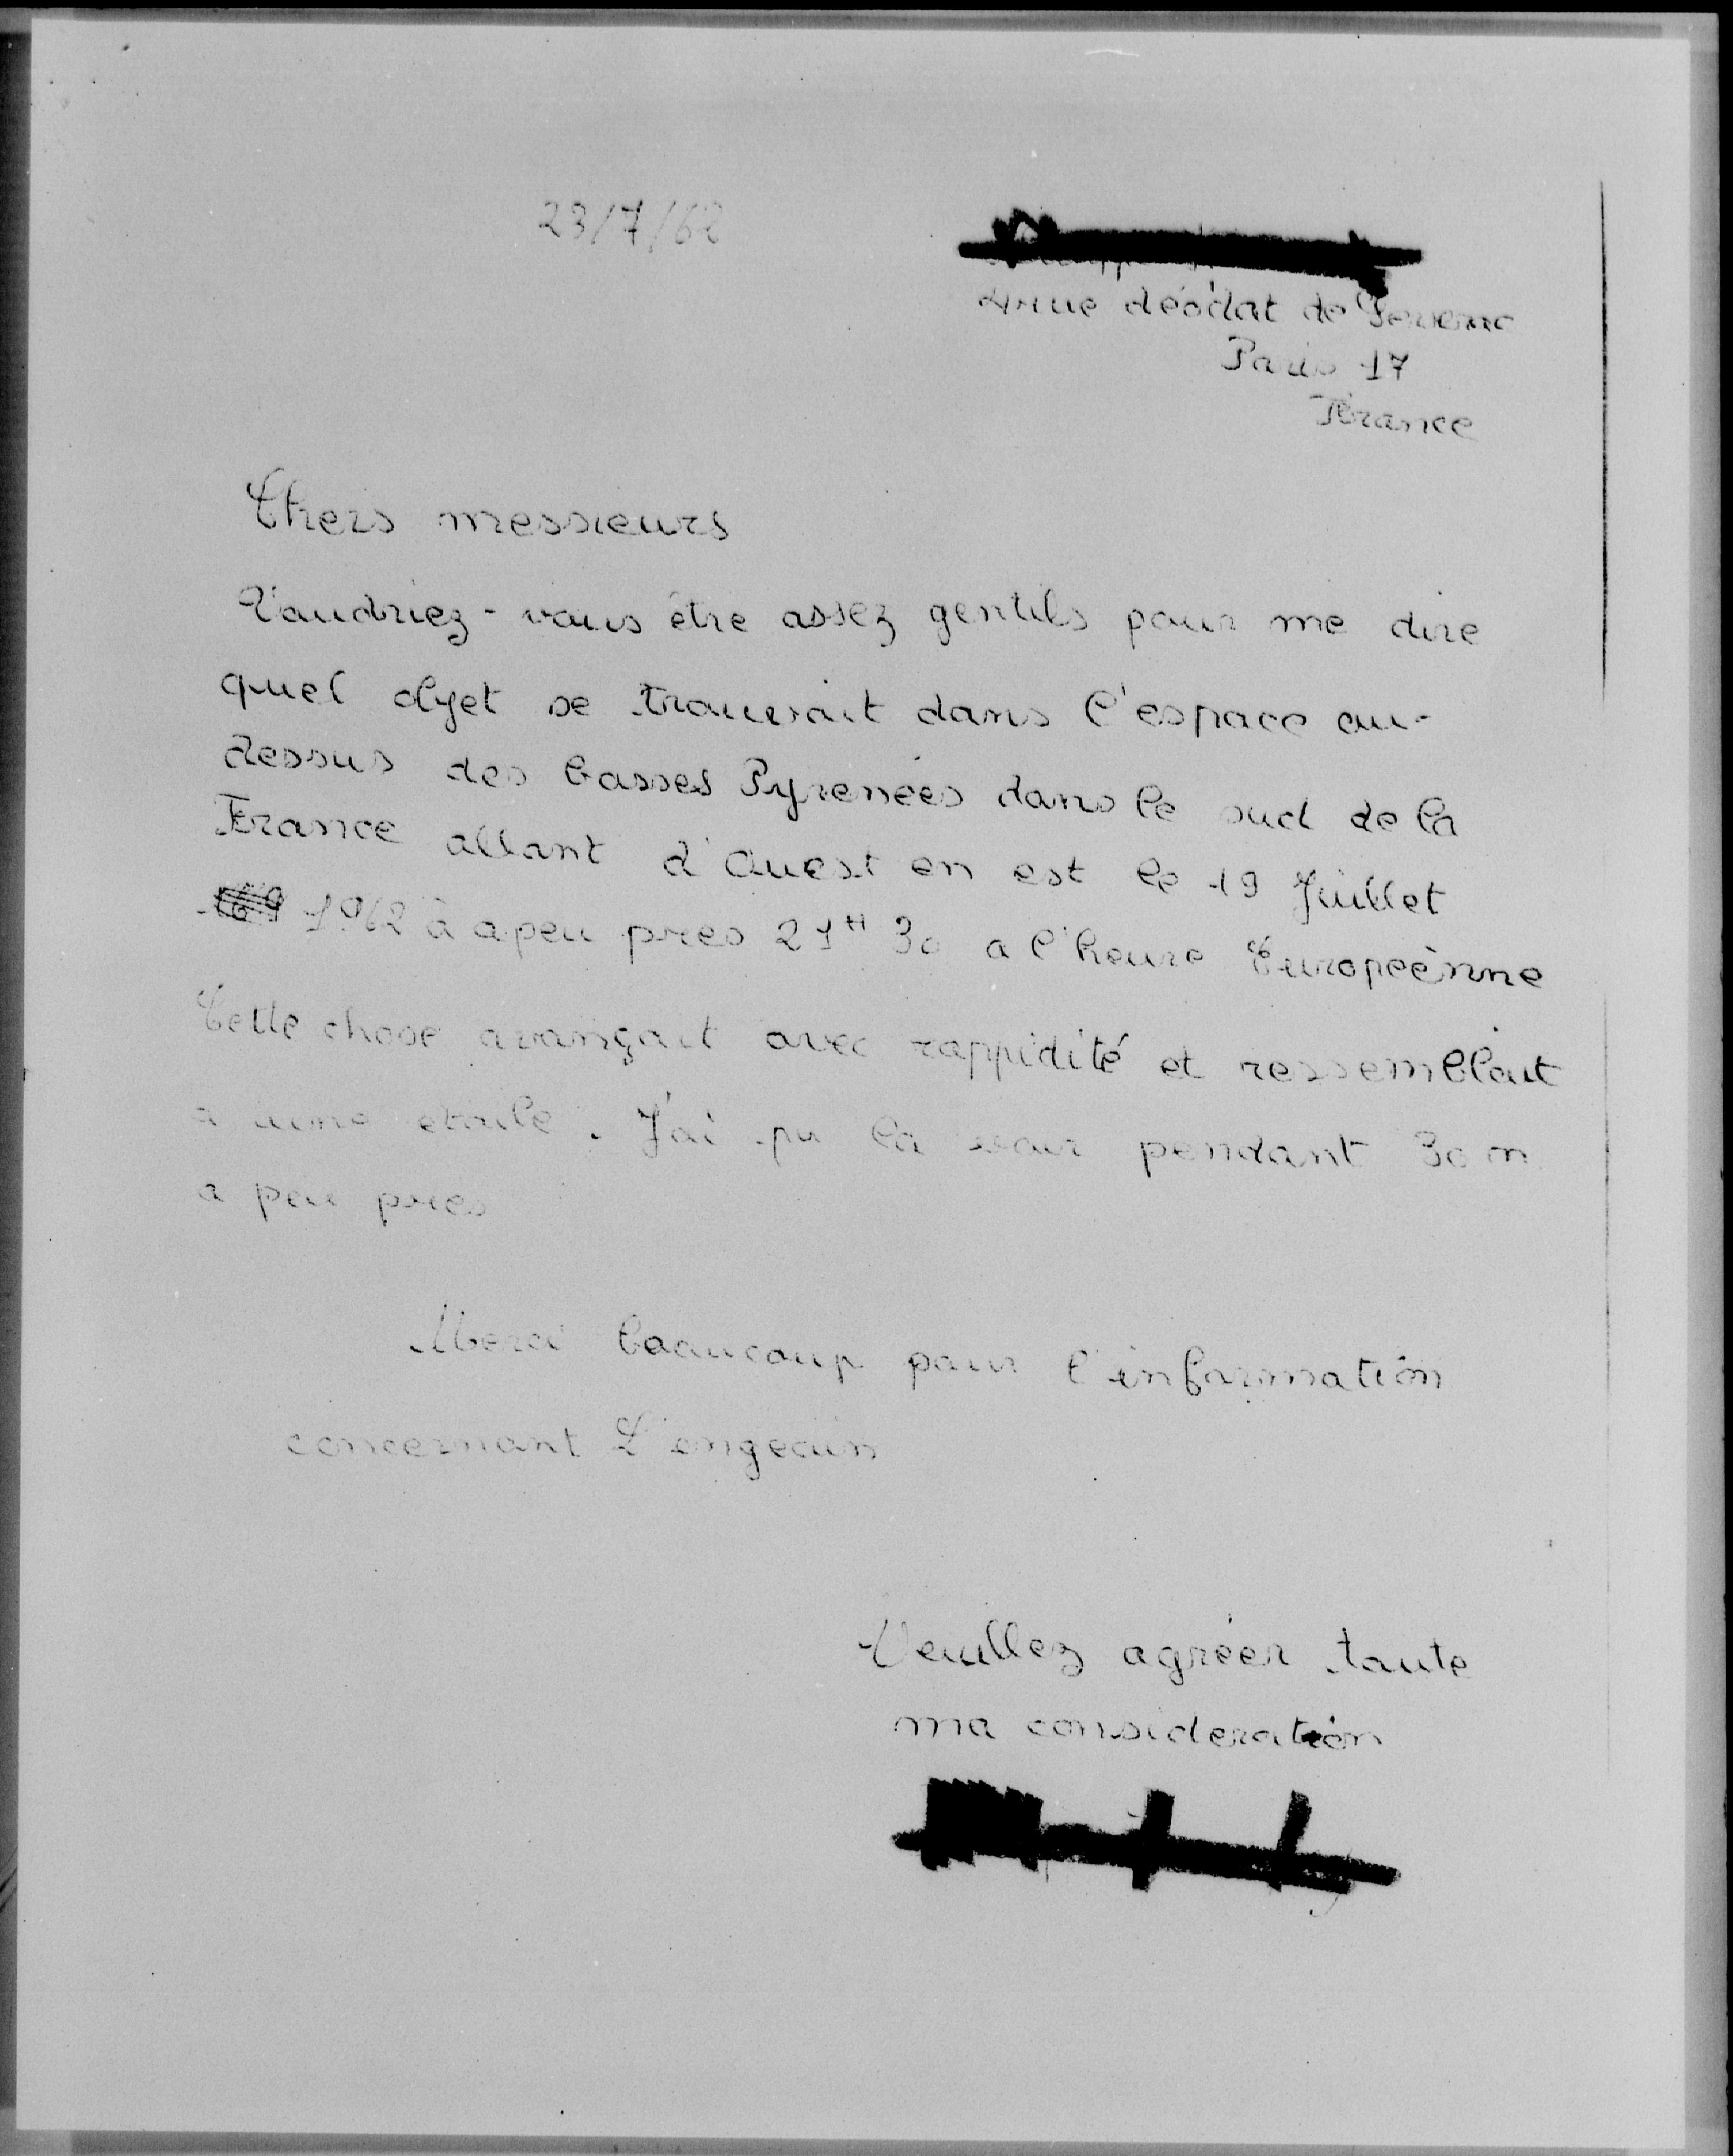 23/7/62
4 rue déodat de Severac
Paris 17
France
Chers messieurs
Voudriez-vous être assez gentils pour me dire
quel objet se trouverait dans l'espace au-
dessus des basses Pyrenées dans le sud de la
France allant d'Ouest en est le 19 Juillet
1962 à apeu pres 21H 30 a l'heure Européenne
Cette chose avançait avec rappidité et ressemblait
a une etoile. J'ai pu la voir pendant 30 m
a peu pres
Merci beaucoup pour l'information
concernant L'engeun
Veuillez agréer toute
ma consideration